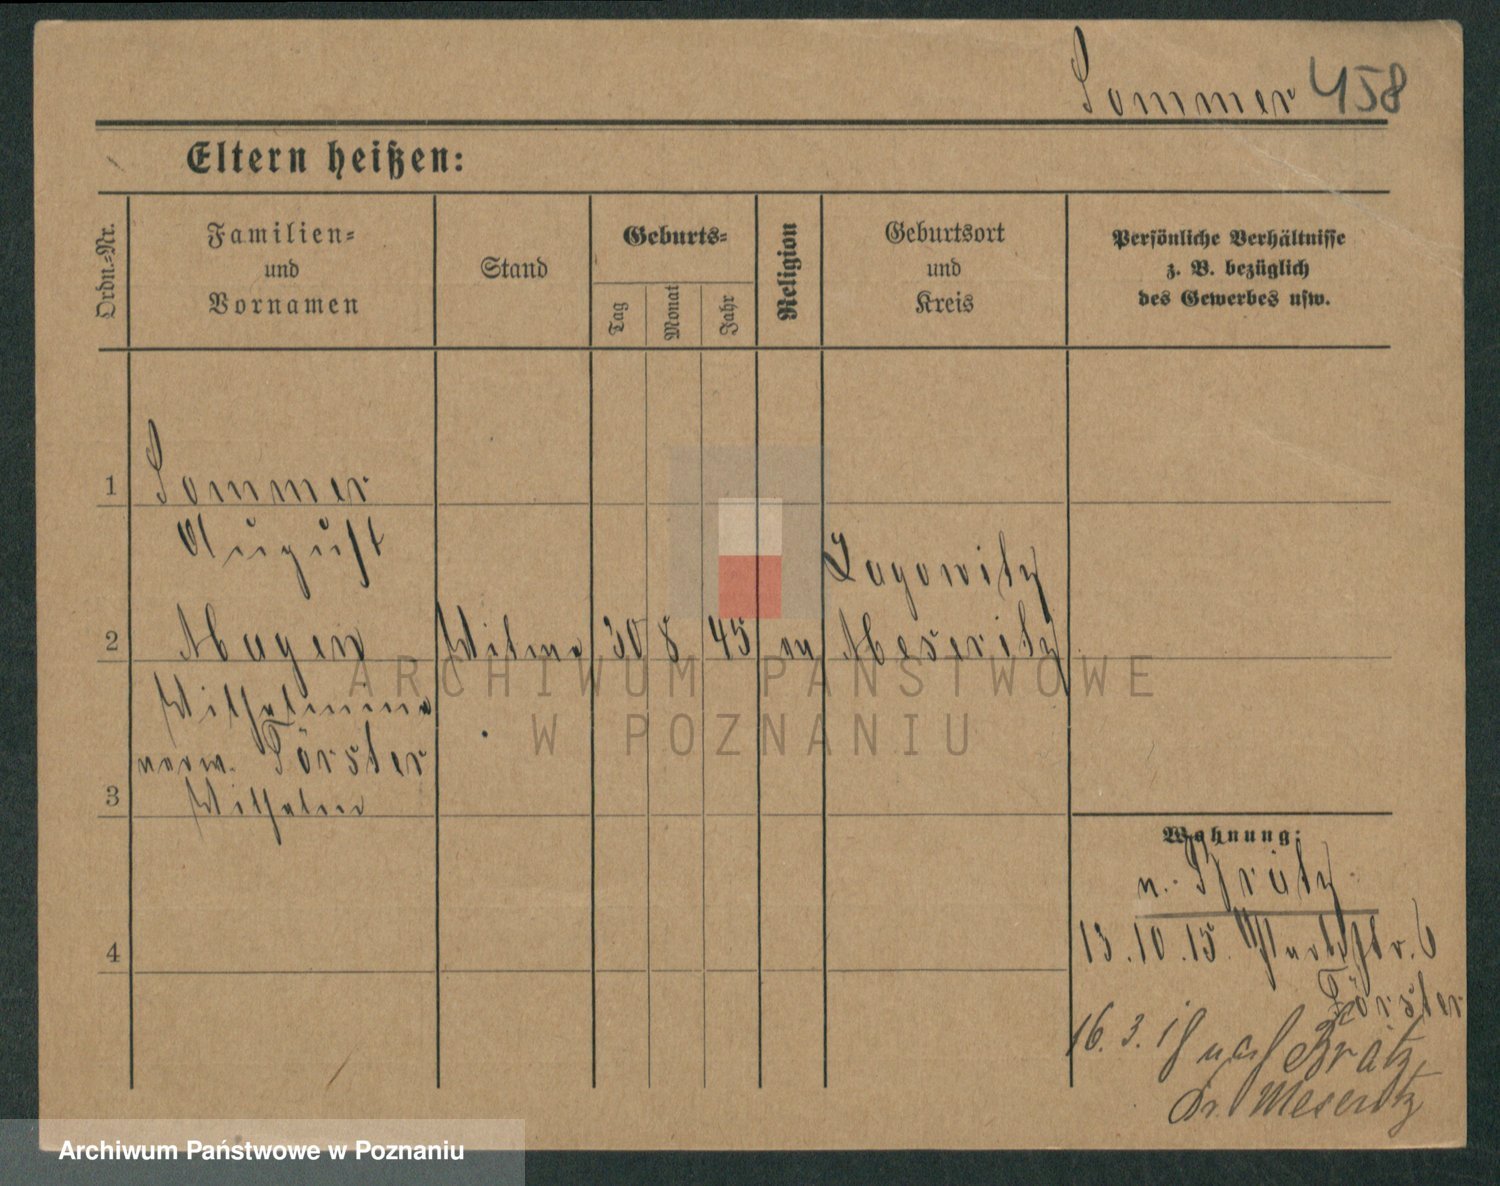 Sommer 458
Eltern heißen:
Ordn.-Nr.
Familien-
und
Vornamen
Stand
Geburts-
Tag
Monat
Jahr
Religion
Geburtsort
und
Kreis
Persönliche Verhältnisse
z. B. bezüglich
des Gewerbes usw.
1
Sommer
August
Lagowitz
2
Magen Witwe 30 8 45 ev Meseritz
Wilhelmine
verw. Förster
3
Wilhelm
Wohnung:
v. Brätz
4
13.10.15. 6
Förster
16. 3. nach Brätz,
Kr. Meseritz
ARCHIWUM PAŃSTWOWE
W POZNANIU
Archiwum Państwowe w Poznaniu